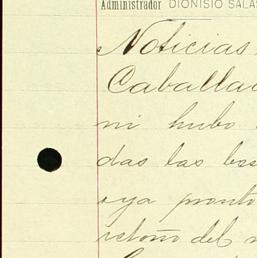 Administrador DIONISIO SALAS
Noticias
Caballa
ni hubo
das las
oya pronto
retoño del